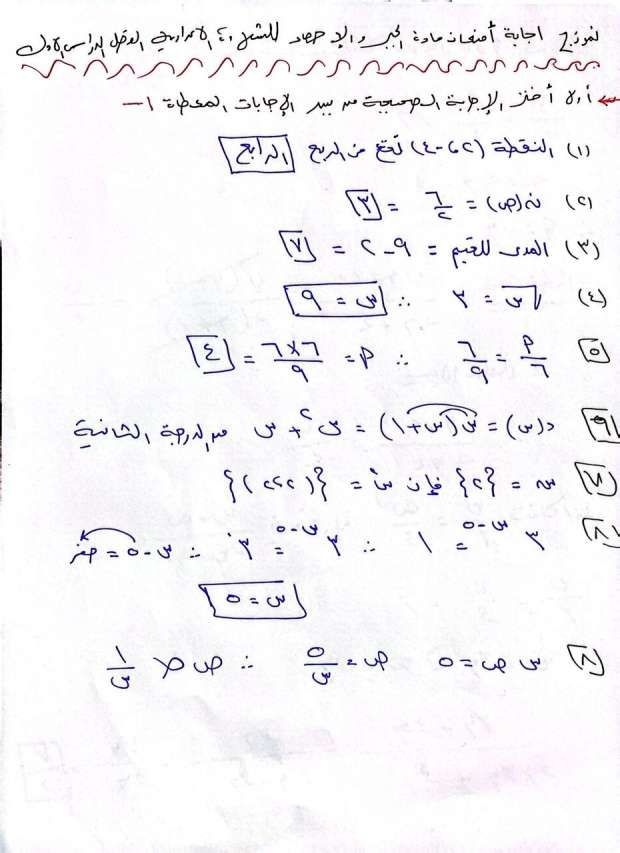 نموذج اجابة أمتحان مادة الجبر والإحصاء للشهادة الاعدادية الفصل الدراسى الاول
أولا أختر الإجابة الصحيحة من بين الإجابات المعطاة :-
(١) النقطة (٢، -٤) تقع من الربع الرابع
(٢) ن(ص) = ٦/٢ = ٣
(٣) المدى للقيم = ٩ - ٢ = ٧
(٤) √س = ٣ ∴ س = ٩
٥ م/٦ = ٦/٩ ∴ م = ٦×٦/٩ = ٤
٦ د(س) = س(س+١) = س^٢ + س من الدرجة الثانية
٧ س = {٢} فإن س^٢ = {(٢،٢)}
٨ ٣^(س-٥) = ١ ∴ ٣^(س-٥) = ٣^٠ ∴ س-٥ = صفر
س = ٥
٨ س ص = ٥ ص = ٥/س ∴ ص ∝ ١/س